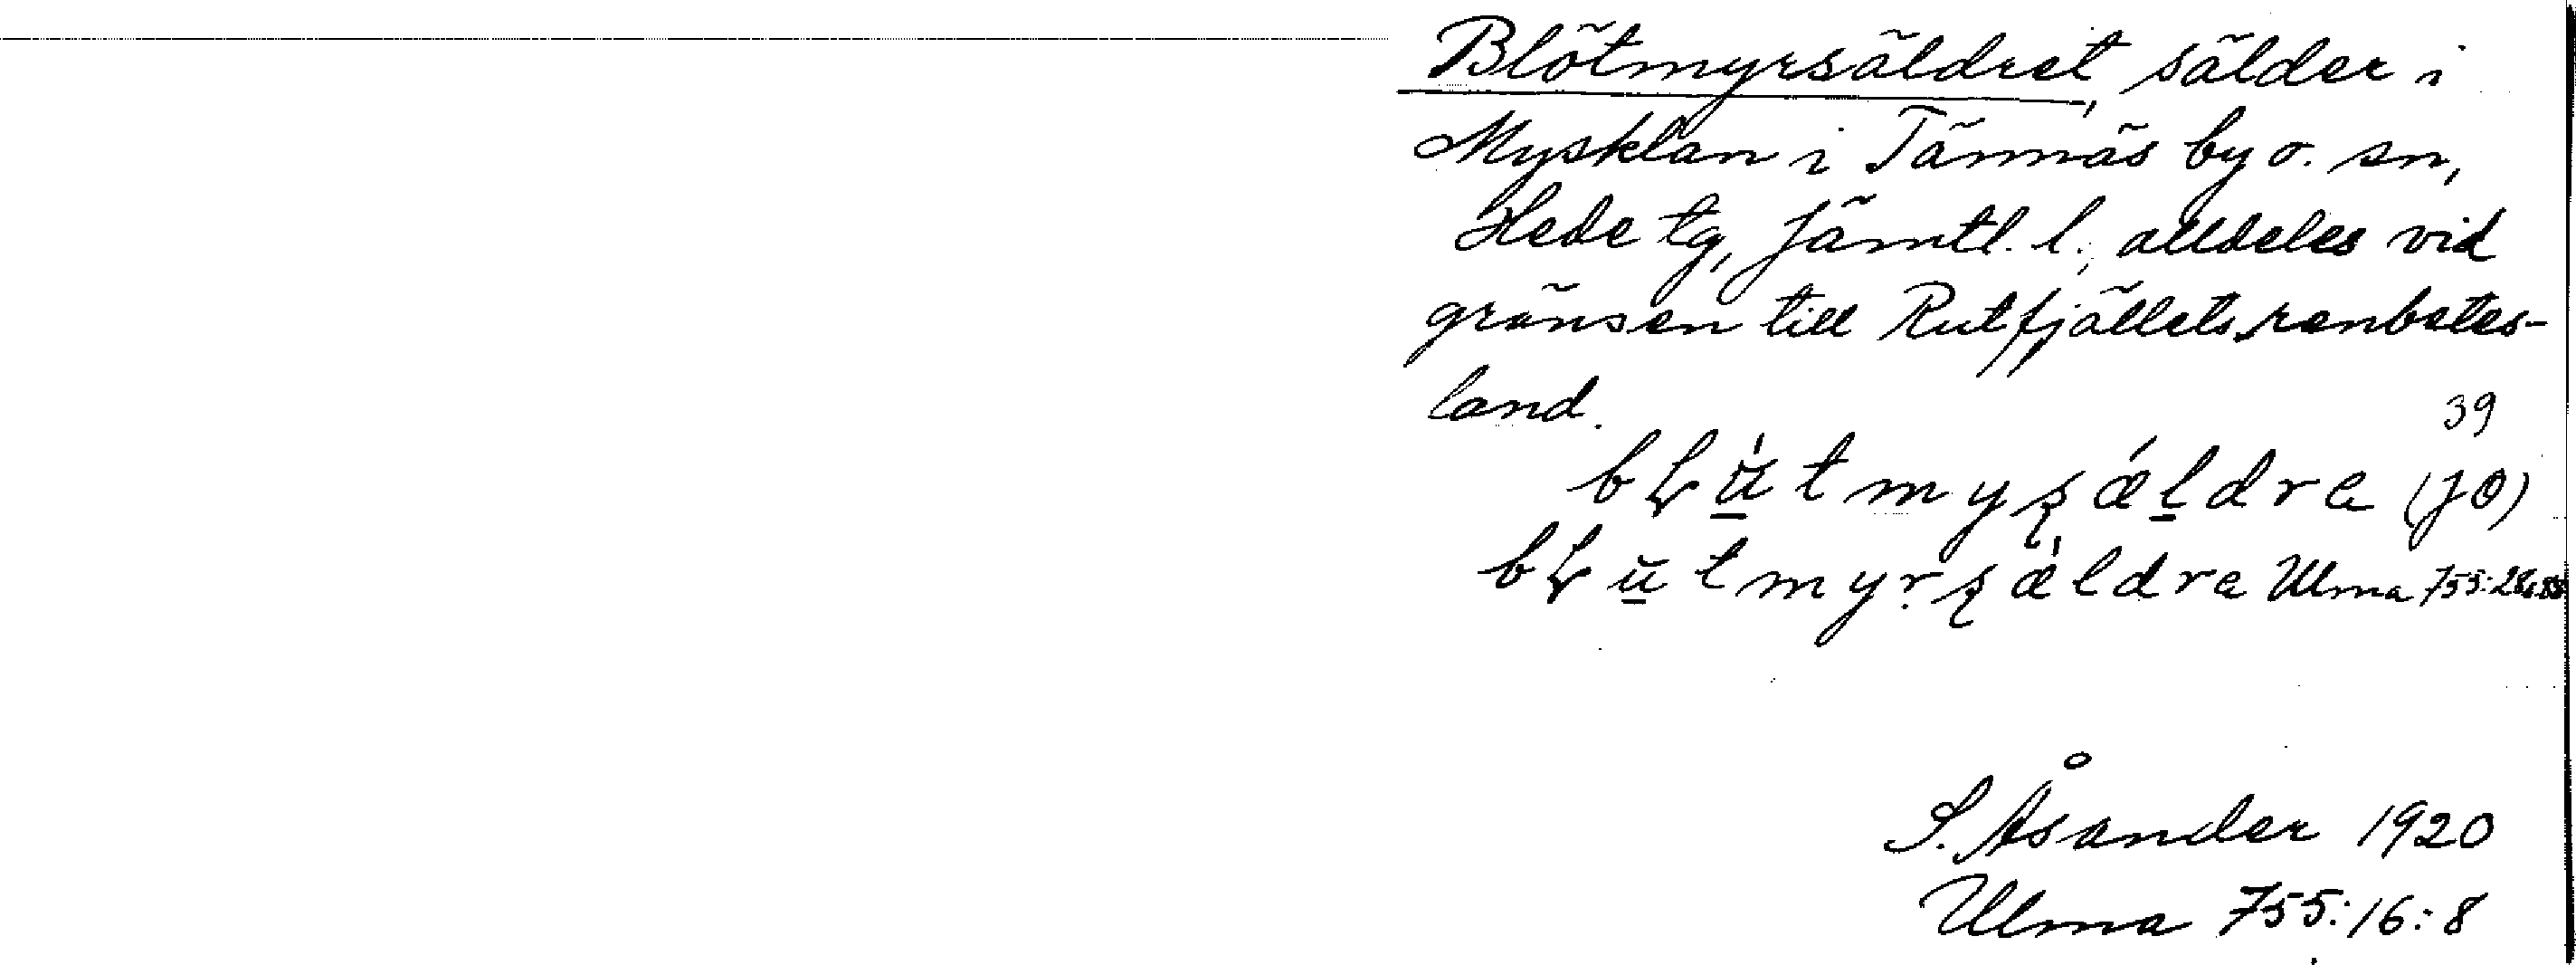 Blötmyrsäldret, sälder i
Mysklan i Tännäs by o. sn,
Hede tg, Jämtl. l., alldeles vid
gränsen till Rutfjällets renbetes-
land.
39
bɫù̲tmyʂæ̀l̲dra (JO)
bɫu̲tmyrʂæ̀ldra Ulma 755:
S. Åsander 1920
Ulma 755:16:8